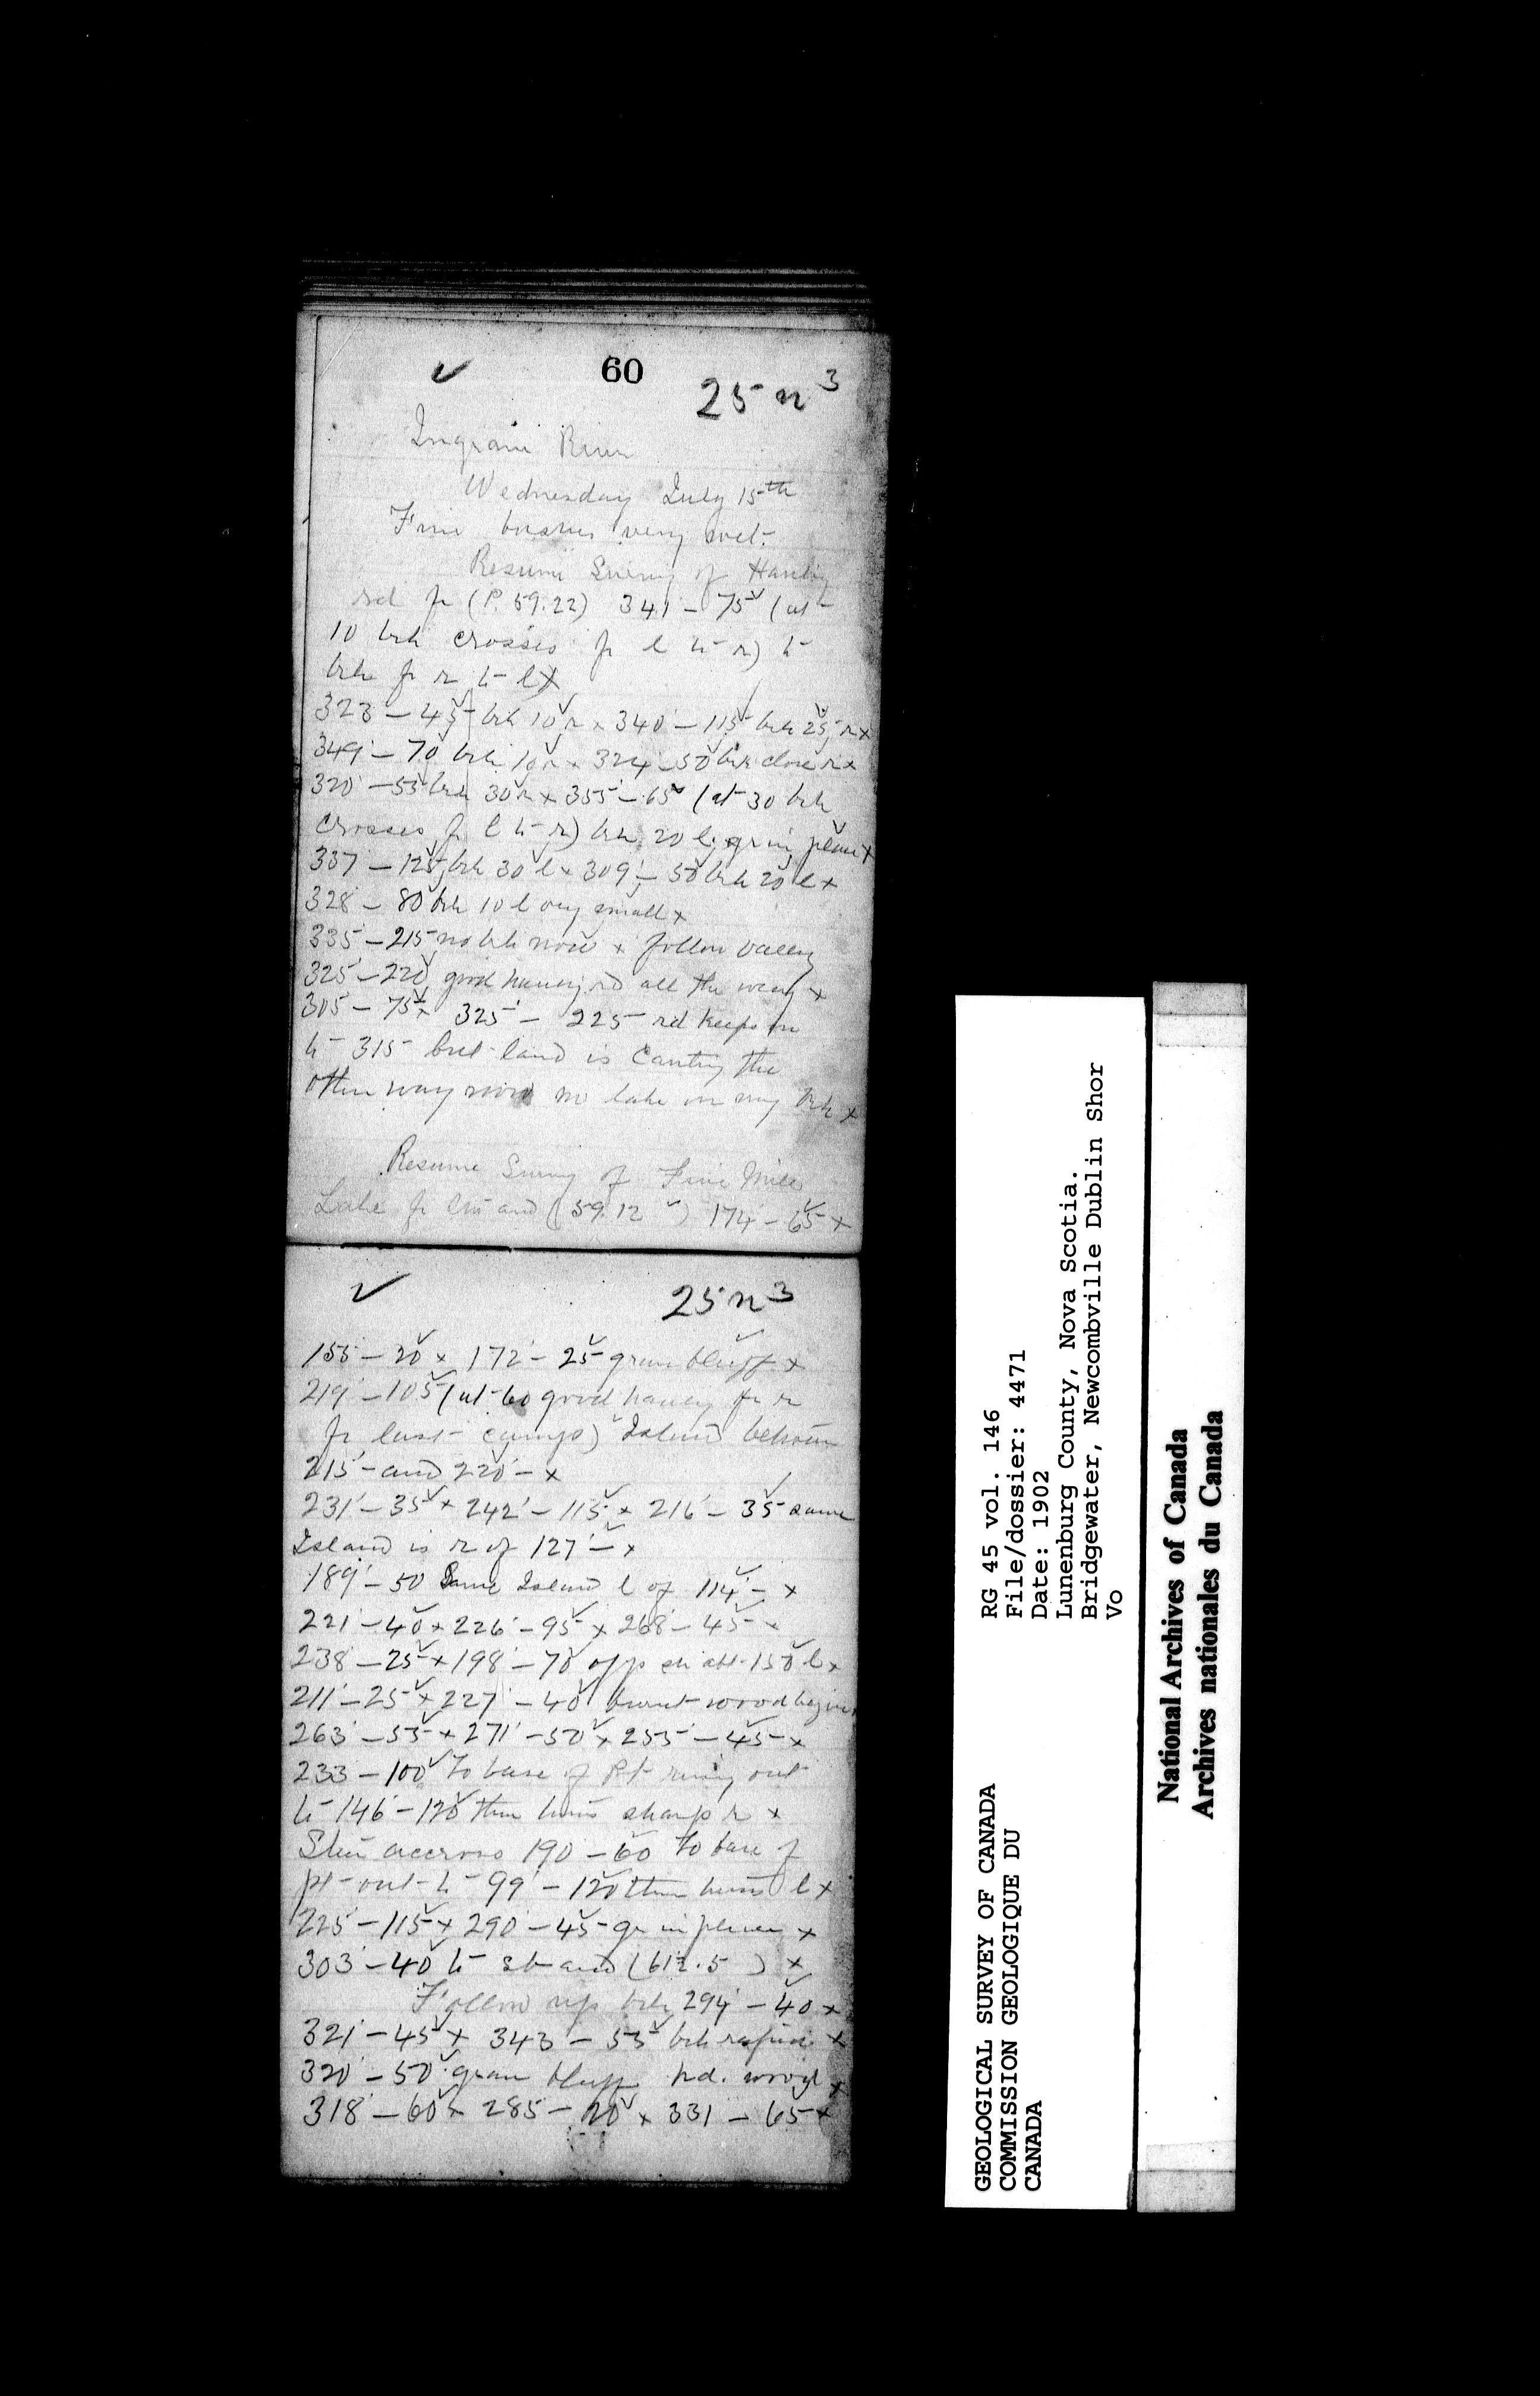 ✓ 60 25 n 3
Ingram River
Wednesday July 15th
Fine bushes very wet.
Resume Survey of Hauling
rd fr (P. 59.22) 341 - 75 (at
10 brk crosses fr l to r) to
brk fr r to l x
323 - 45 brk 10 r x 340 - 115 brk 25 r x
349 - 70 brk 10 r x 324 - 50 brk close r x
320 - 55 brk 30 r x 355 - 65 (at 30 brk
crosses fr l to r) brk 20 l gr in place x
337 - 125 brk 30 l x 309 - 50 brk 20 l x
328 - 80 brk 10 l very small x
335 - 215 no brk now x follow valley
325 - 220 good hauling rd all the way x
305 - 75 x 325 - 225 rd keeps on
to 315 but land is canting the
other way now no lake on my brk x
Resume Survey of Five Mile
Lake fr and (59.12) 174 - 65 x
✓ 25 n 3
155 - 20 x 172 - 25 gran bluff x
219 - 105 (at 60 good hauling fr r
fr last camps) Island between
215 - and 220 - x
231 - 35 x 242 - 115 x 216 - 35 same
Island is r of 127 - x
189 - 50 Same Island l of 114 - x
221 - 40 x 226 - 95 x 268 - 45 x
238 - 25 x 198 - 70 opp abt 150 l x
211 - 25 x 227 - 40 burnt wood begins
263 - 55 x 271 - 50 x 255 - 45 x
233 - 100 To base of Pt runing out
to 146 - 120 then turns sharp r x
Then accross 190 - 60 To base of
pt out to 99 - 120 then turns l x
225 - 115 x 290 - 45 gr in place x
303 - 40 to st and (612.5) x
Follow up brk 294 - 40 x
321 - 45 x 343 - 55 brk rapid x
320 - 50 gran bluff hd. wood x
318 - 60 x 285 - 20 x 331 - 65 x
GEOLOGICAL SURVEY OF CANADA
COMMISSION GEOLOGIQUE DU
CANADA
RG 45 vol. 146
File/dossier: 4471
Date: 1902
Lunenburg County, Nova Scotia.
Bridgewater, Newcombville Dublin Shor
Vo
National Archives of Canada
Archives nationales du Canada